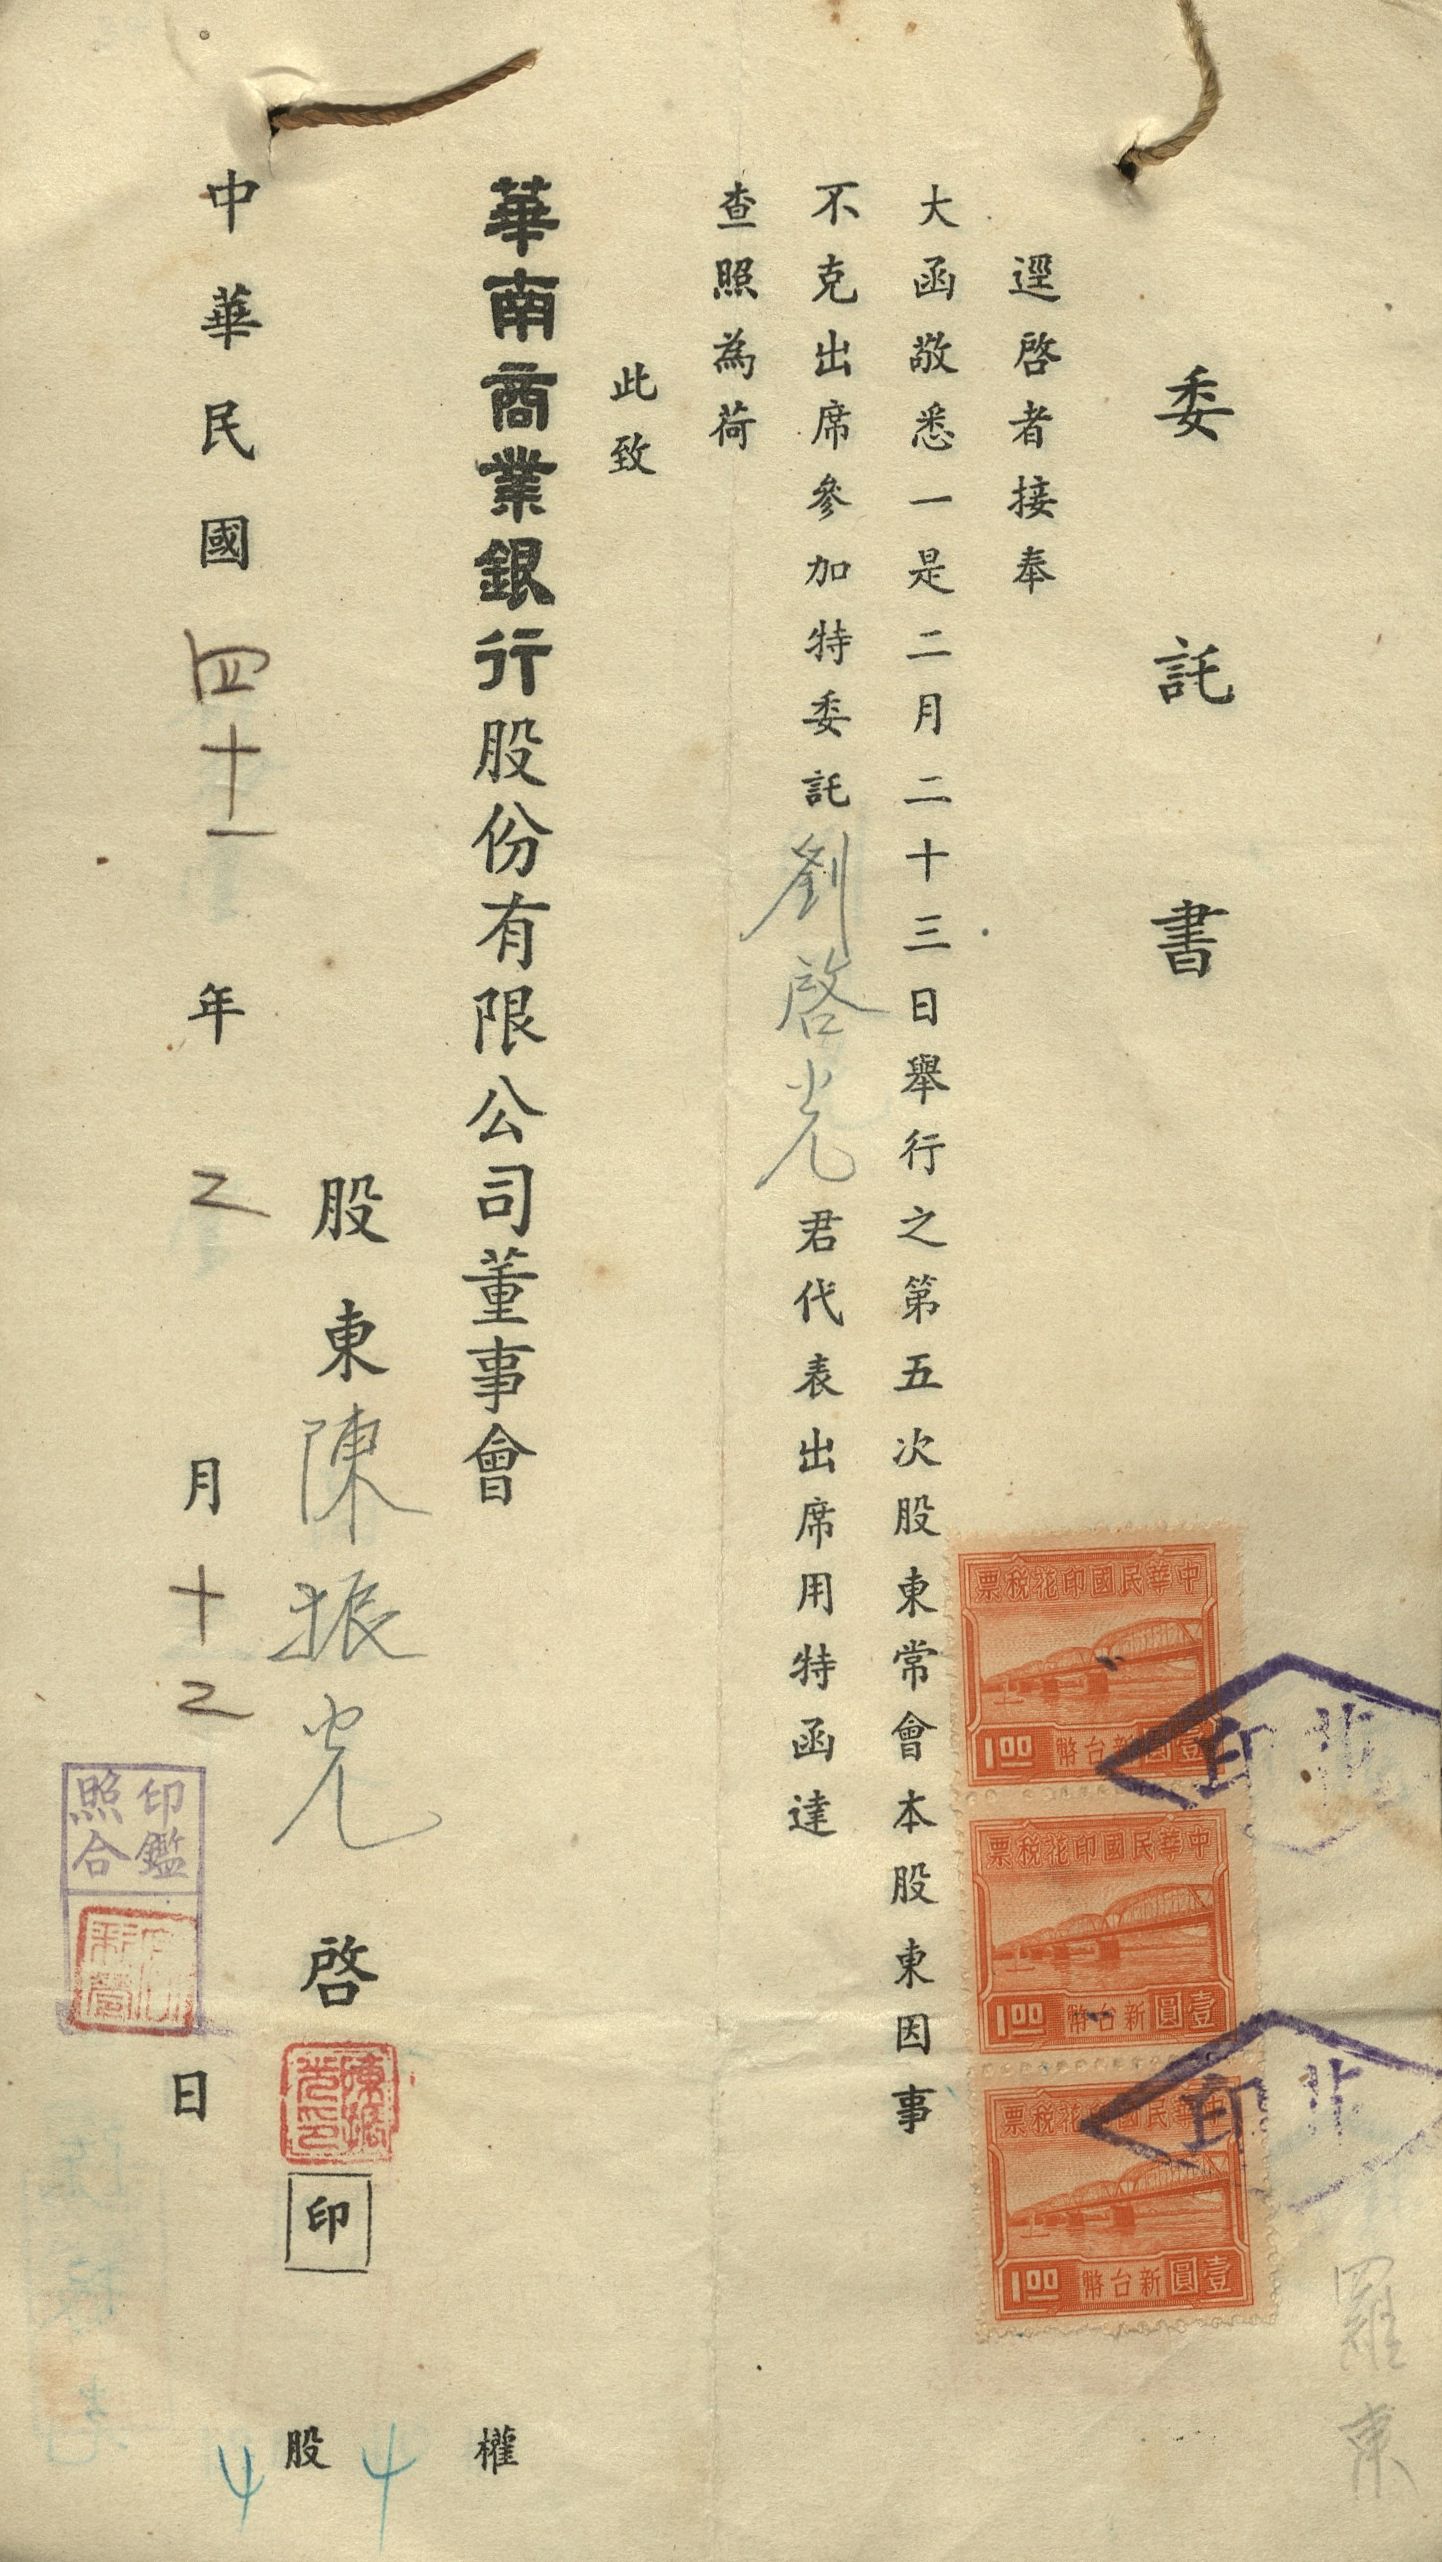 委託書
逕啓者接奉
大函敬悉一是二月二十三日舉行之第五次股東常會本股東因事
不克出席參加特委託劉啓光君代表出席用特函達
查照為荷
此致
華南商業銀行股份有限公司董事會
股東陳振光啓
印
陳振光印
中華民國四十一年二月十二日
印鑑
照合
權4
股4
中華民國印花稅票
壹圓新台幣
1.00
中華民國印花稅票
壹圓新台幣
1.00
中華民國印花稅票
壹圓新台幣
1.00
羅東